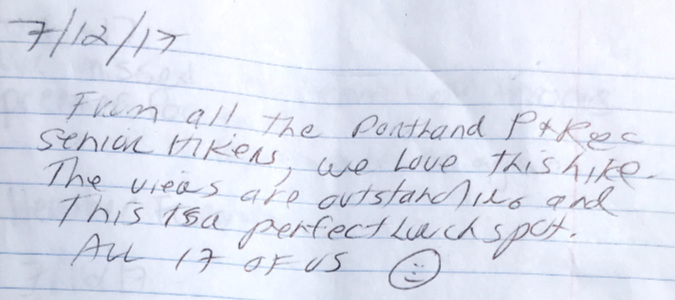 7/12/17
From all the Portland P+Rec
senior Hikers, we Love this hike.
The views are outstanding and
This is a perfect Lunch spot.
All 17 of us ☺